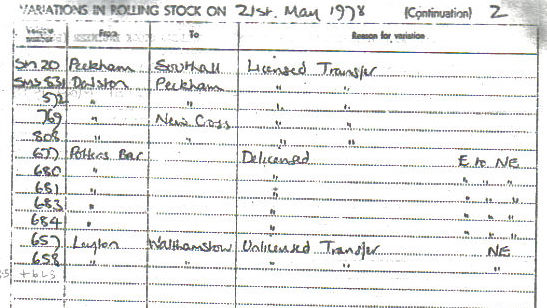 VARIATIONS IN ROLLING STOCK ON 21st. May 1978 (Continuation) 2
From To Reason for variation
Sm 20 Peckham Southall Licensed Transfer
SMS 531 Dalston Peckham " "
572 " " " "
769 " New Cross " "
808 " " " "
677 Potters Bar Delicensed E to NE
680 " " " " "
681 " " " " "
683 " " " " "
684 " " " " "
657 Leyton Walthamstow Unlicensed Transfer NE
658 " " " " "